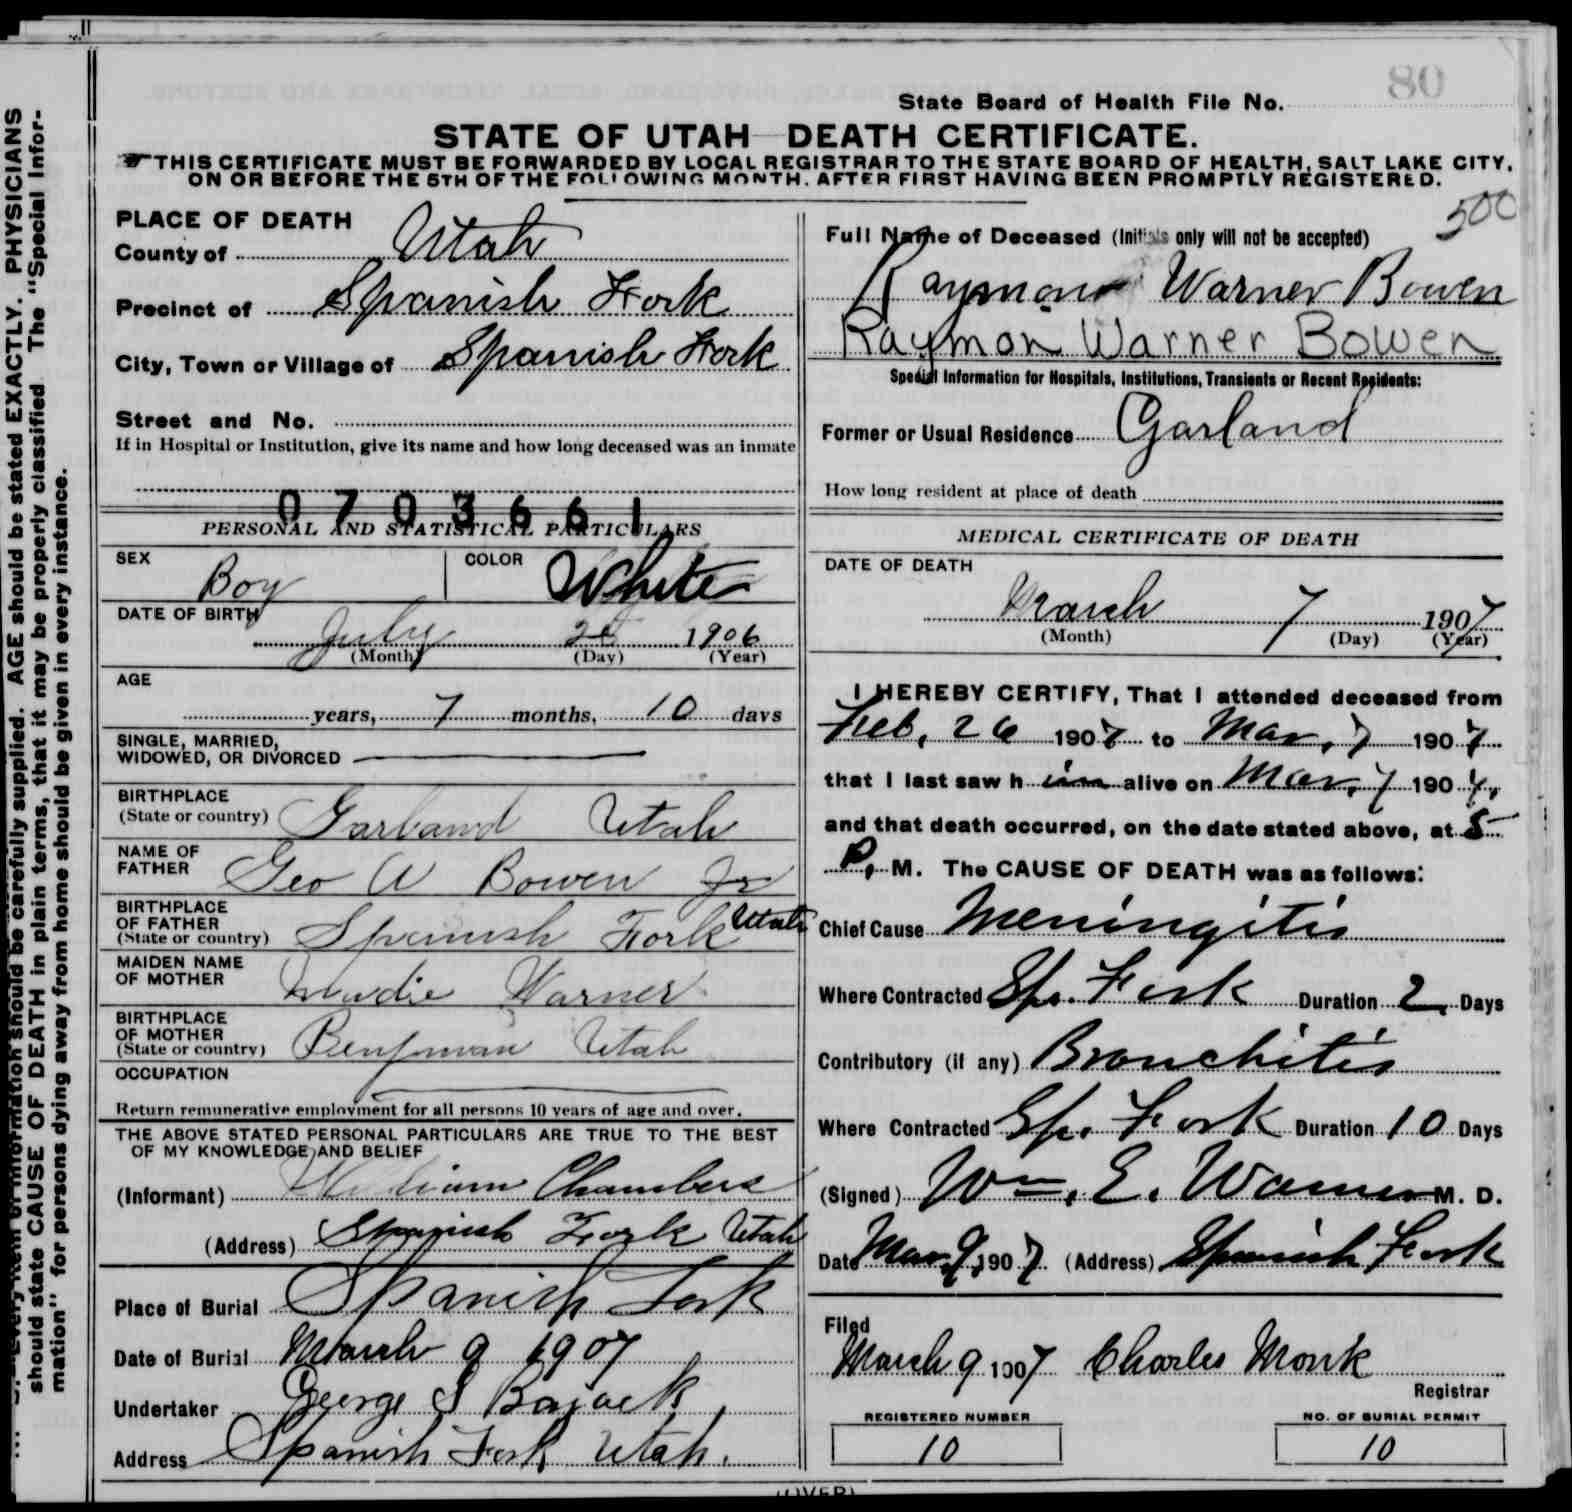 80
State Board of Health File No.
STATE OF UTAH DEATH CERTIFICATE.
THIS CERTIFICATE MUST BE FORWARDED BY LOCAL REGISTRAR TO THE STATE BOARD OF HEALTH, SALT LAKE CITY,
ON OR BEFORE THE 5TH OF THE FOLLOWING MONTH, AFTER FIRST HAVING BEEN PROMPTLY REGISTERED.
500
PLACE OF DEATH
County of Utah
Precinct of Spanish Fork
City, Town or Village of Spanish Fork
Street and No.
If in Hospital or Institution, give its name and how long deceased was an inmate
0703661
PERSONAL AND STATISTICAL PARTICULARS
SEX Boy COLOR White
DATE OF BIRTH
July 1906
(Month) (Day) (Year)
AGE
years, 7 months, 10 days
SINGLE, MARRIED,
WIDOWED, OR DIVORCED
BIRTHPLACE
(State or country) Garland Utah
NAME OF
FATHER Geo A Bowen Jr
BIRTHPLACE
OF FATHER
(State or country) Spanish Fork Utah
MAIDEN NAME
OF MOTHER Warner
BIRTHPLACE
OF MOTHER
(State or country) Benjman Utah
OCCUPATION
Return remunerative employment for all persons 10 years of age and over.
THE ABOVE STATED PERSONAL PARTICULARS ARE TRUE TO THE BEST
OF MY KNOWLEDGE AND BELIEF
(Informant) William Chambers
(Address) Spanish Fork Utah
Place of Burial Spanish Fork
Date of Burial March 9 1907
Undertaker George S
Address Spanish Fork Utah.
Full Name of Deceased (Initials only will not be accepted)
Raymon Warner Bowen
Raymon Warner Bowen
Special Information for Hospitals, Institutions, Transients or Recent Residents:
Former or Usual Residence Garland
How long resident at place of death
MEDICAL CERTIFICATE OF DEATH
DATE OF DEATH
March 7 1907
(Month) (Day) (Year)
I HEREBY CERTIFY, That I attended deceased from
Feb, 26 1907 to Mar, 7 1907
that I last saw him alive on Mar, 7 1907,
and that death occurred, on the date stated above, at 5
P. M. The CAUSE OF DEATH was as follows:
Chief Cause Meningitis
Where Contracted Sp. Fork Duration 2 Days
Contributory (if any) Bronchitis
Where Contracted Sp. Fork Duration 10 Days
(Signed) Wm. E. Warner M. D.
Date Mar, 9, 1907 (Address) Spanish Fork
Filed
March 9 1907 Charles Monk
Registrar
REGISTERED NUMBER
10
NO. OF BURIAL PERMIT
10
(OVER)
should state CAUSE OF DEATH in plain terms, that it may be properly classified The "Special Infor-
mation" for persons dying away from home should be given in every instance.